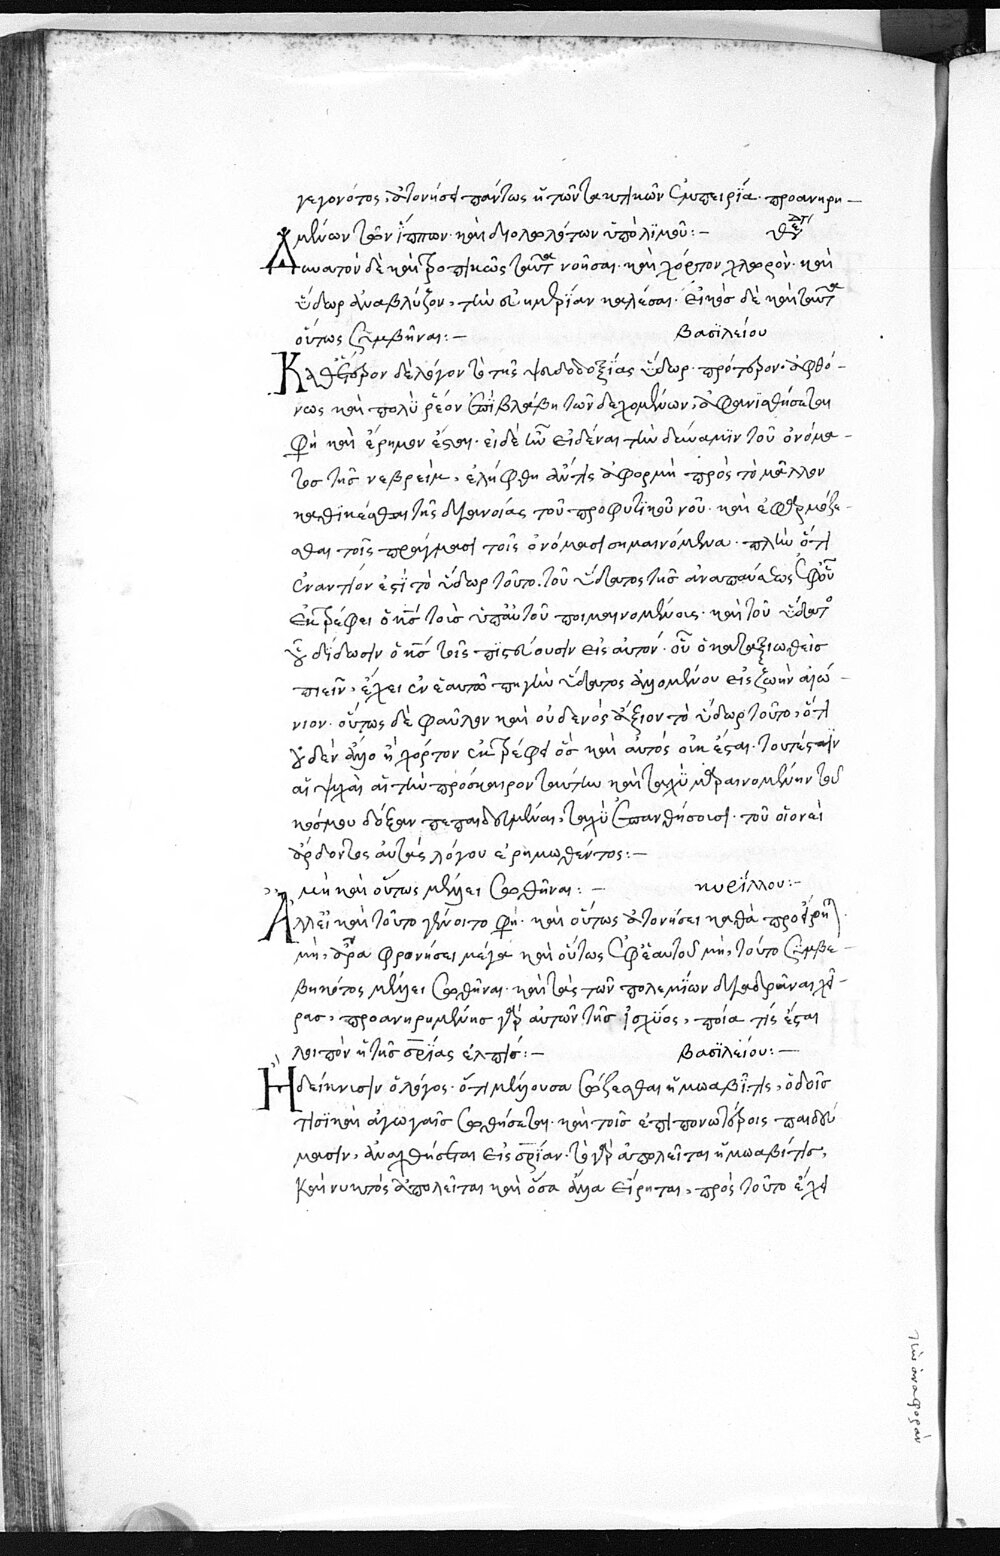 γεγονότος, ἀτονήσει πάντως ἡ τῶν τακτικῶν ἐμπειρία· προανηρη–
μένων τῶν ἵππων· καὶ διολωλότων ὑπὸ λιμοῦ:–
Δυνατὸν δὲ καὶ τροπικῶς ταῦτα νοῆσαι· καὶ χόρτον χλωρὸν· καὶ
ὕδωρ ἀναβλύζον, τὴν εὐημερίαν καλέσαι· εἰκὸς δὲ καὶ ταῦτα
οὕτως συμβῆναι:– βασιλείου
Καθ' ἕτερον δὲ λόγον τὸ τῆς ψευδοδοξίας ὕδωρ· πρότερον ἀφθό–
νως καὶ πολὺ ῥέον ἐπὶ βλάβῃ τῶν δεχομένων, ἀφανισθήσεται
φη καὶ ἔρημον ἔσται· εἰ δὲ τῶ εἰδέναι τὴν δύναμιν τοῦ ὀνόμα–
τος τῆς νεβρεὶμ, ἐλήφθη αὐτῆς ἀφορμὴ πρὸς τὸ μᾶλλον
καθικέσθαι τῆς διανοίας τοῦ προφητικοῦ νοῦ· καὶ ἐφαρμόζε–
σθαι τοῖς πράγμασι τοῖς ὀνόμασι σημαινόμενα· πλὴν ὅτι
ἐναντίον ἐστὶ τὸ ὕδωρ τοῦτο. τοῦ ὕδατος τῆς ἀναπαύσεως ἐφ' οὗ
ἐκτρέφει ὁ κς τοὺς ὑπ' αὐτοῦ ποιμαινομένους· καὶ τοῦ ὕδατος
οὗ δίδωσιν ὁ κς τοῖς πιστεύουσιν εἰς αὐτόν· οὗ ὁ καταξιωθεὶς
πιεῖν, ἔχει ἐν ἑαυτῶ πηγὴν ὕδατος ἁλλομένου εἰς ζωὴν αἰώ–
νιον· οὕτως δὲ φαῦλον καὶ οὐδενὸς ἄξιον τὸ ὕδωρ τοῦτο, ὅτι
οὐδὲν ἄλλο ἢ χόρτον ἐκτρέφει ὃς καὶ αὐτὸς οὐκ ἔσται· τουτέστιν
αἱ ψυχαὶ αἱ τὴν πρόσκαιρον ταύτην καὶ ταχὺ μαραινομένην τοῦ
κόσμου δόξαν πεπαιδευμέναι, ταχὺ ἐπανθήσουσι· τοῦ οἱονεὶ
ἄρδοντος αὐτὰς λόγου ἐρημωθέντος:–
μὴ καὶ οὕτως μέλλει σωθῆναι:– κυρίλλου:–
Ἀλλ' εἰ καὶ τοῦτο γένοιτο φη· καὶ οὕτως ἀτονήσει καθὰ προείρη
μὴ, ἆρα φρονήσει μέγα καὶ οὕτως ἐφ' ἑαυτοῦ μὴ, τούτου συμβε–
βηκότος μέλλει σωθῆναι· καὶ τὰς τῶν πολεμίων διαδρᾶναι χεῖ–
ρας, προανηρημένης γὰρ αὐτῶν τῆς ἰσχύος, ποία τίς ἔσται
λοιπὸν ἡ τῆς σριας ἐλπίς:– βασιλείου:–
Ἢ δείκνυσιν ὁ λόγος· ὅτι μέλλουσα σώζεσθαι ἡ μωαβῖτις, ὁδοῖς
τισὶ καὶ ἀγωγαῖς σωθήσεται· καὶ τοῖς ἐπιπονωτέροις παιδεύ
μασιν, ἀναχθήσεται εἰς σριαν· τὸ γὰρ ἀπολεῖται ἡ μωαβίτις,
καὶ νυκτὸς ἀπολεῖται καὶ ὅσα ἄλλα εἴρηται, πρὸς τοῦτο ἔχει
τὴν ἀναφορὰν